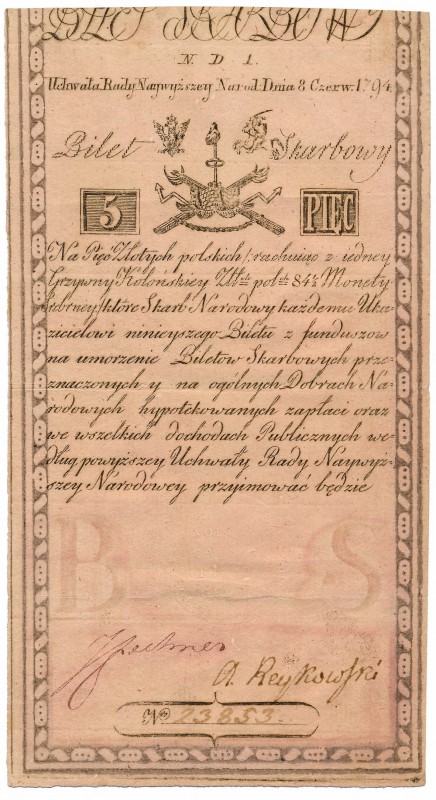 BILET SKARBOWY
N. D 1.
Uchwała Rady Naywyższey Narod: Dnia 8 Czerw: 1794
Bilet Skarbowy
5 PIĘĆ
Na Pięć Złotych polskich /: rachuiąc z iedney
Grzywny Kolońskiey Złt. pol. 84½ Monety
srebrney :/ które Skarb Narodowy każdemu Uka=
zicielowi ninieyszego Biletu z funduszow
na umorzenie Biletów Skarbowych prze=
znaczonych y na ogólnych Dobrach Na=
rodowych hypotekowanych zapłaci oraz
we wszelkich dochodach Publicznych we=
dług powyższey Uchwały Rady Naywyż=
szey Narodowey przyimować będzie
B S
A. Reykowski
No 23853.